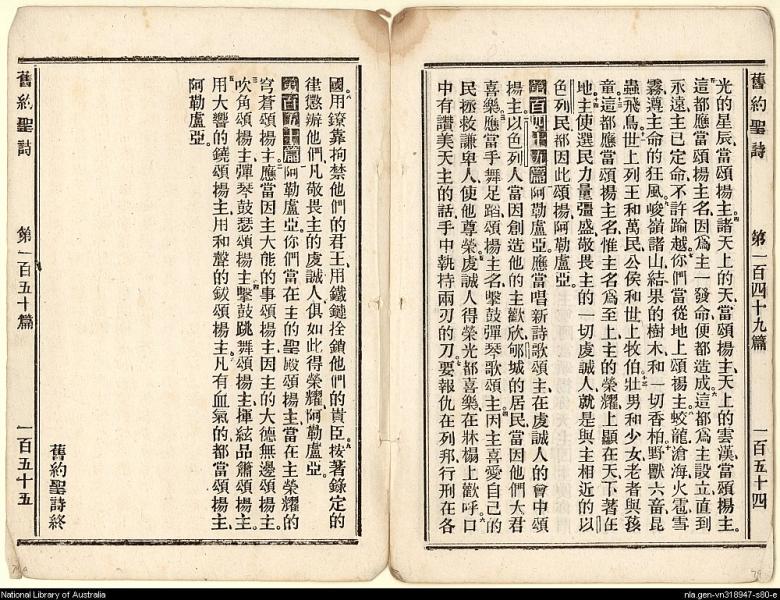 舊約聖詩 第一百四十九篇 一百五十四
光的星辰當頌揚主諸天上的天當頌揚主天上的雲漢當頌揚主
這都應當頌揚主名因爲主一發命便都造成這都爲主設立直到
永遠主已定命不許踰越你們當從地上頌揚主蛟龍滄海火雹雪
霧遵主命的狂風峻嶺諸山結果的樹木和一切香柏野獸六畜昆
蟲飛鳥世上列王和萬民公侯和世上牧伯壯男和少女老者與孩
童這都應當頌揚主名惟主名爲至上主的榮耀上顯在天下著在
地主使選民力量彊盛敬畏主的一切虔誠人就是與主相近的以
色列民都因此頌揚阿勒盧亞
第百四十九篇阿勒盧亞應當唱新詩歌頌主在虔誠人的會中頌
揚主以色列人當因創造他的主歡欣郇城的居民當因他們大君
喜樂應當手舞足蹈頌揚主名擊鼓彈琴歌頌主因主喜愛自己的
民拯救謙卑人使他尊榮虔誠人得榮光都喜樂在牀榻上歡呼口
中有讚美天主的話手中執持兩刃的刀要報仇在列邦行刑在各
國用鐐靠拘禁他們的君王用鐵鏈拴鎖他們的貴臣按著錄定的
律懲辦他們凡敬畏主的虔誠人俱如此得榮耀阿勒盧亞
第百五十篇阿勒盧亞你們當在主的聖殿頌揚主當在主榮耀的
穹蒼頌揚主應當因主大能的事頌揚主因主的大德無邊頌揚主
吹角頌揚主彈琴鼓瑟頌揚主擊鼓跳舞頌揚主揮絃品簫頌揚主
用大響的鐃頌揚主用和聲的鈸頌揚主凡有血氣的都當頌揚主
阿勒盧亞
舊約聖詩終
舊約聖詩 第一百五十篇 一百五十五
National Library of Australia
nla.gen-vn318947-s80-e